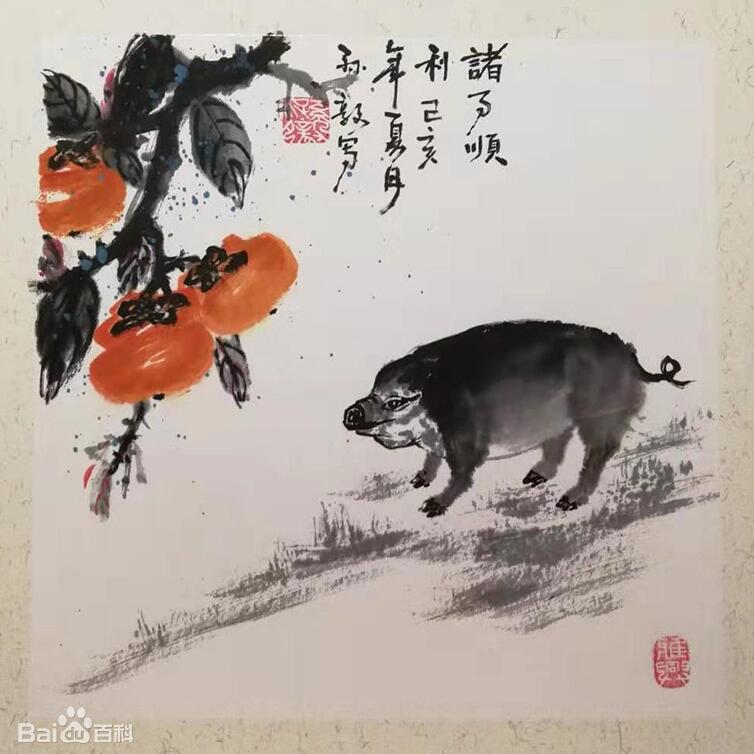 諸事順
利己亥
年夏月
孙毅写
雅興
Bai百科